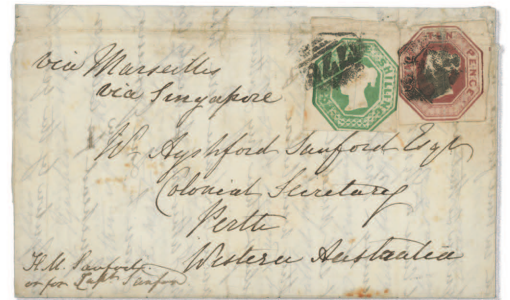 via Marseilles
via Singapore
ONE SHILLING
TEN PENCE
Wm Ayshford Sanford Esqr
Colonial Secretary
Perth
Western Australia
H.M. Sanford
or for Capt Sanford